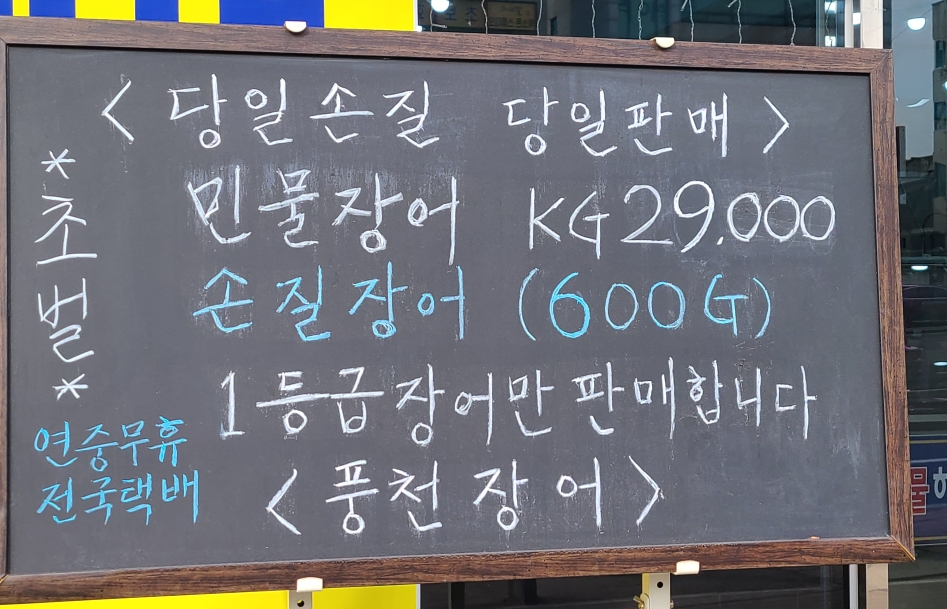 <당일손질 당일판매>
민물장어 KG 29.000
손질장어 (600G)
1등급 장어만 판매합니다
<풍천장어>
*초벌*
연중무휴
전국택배
물